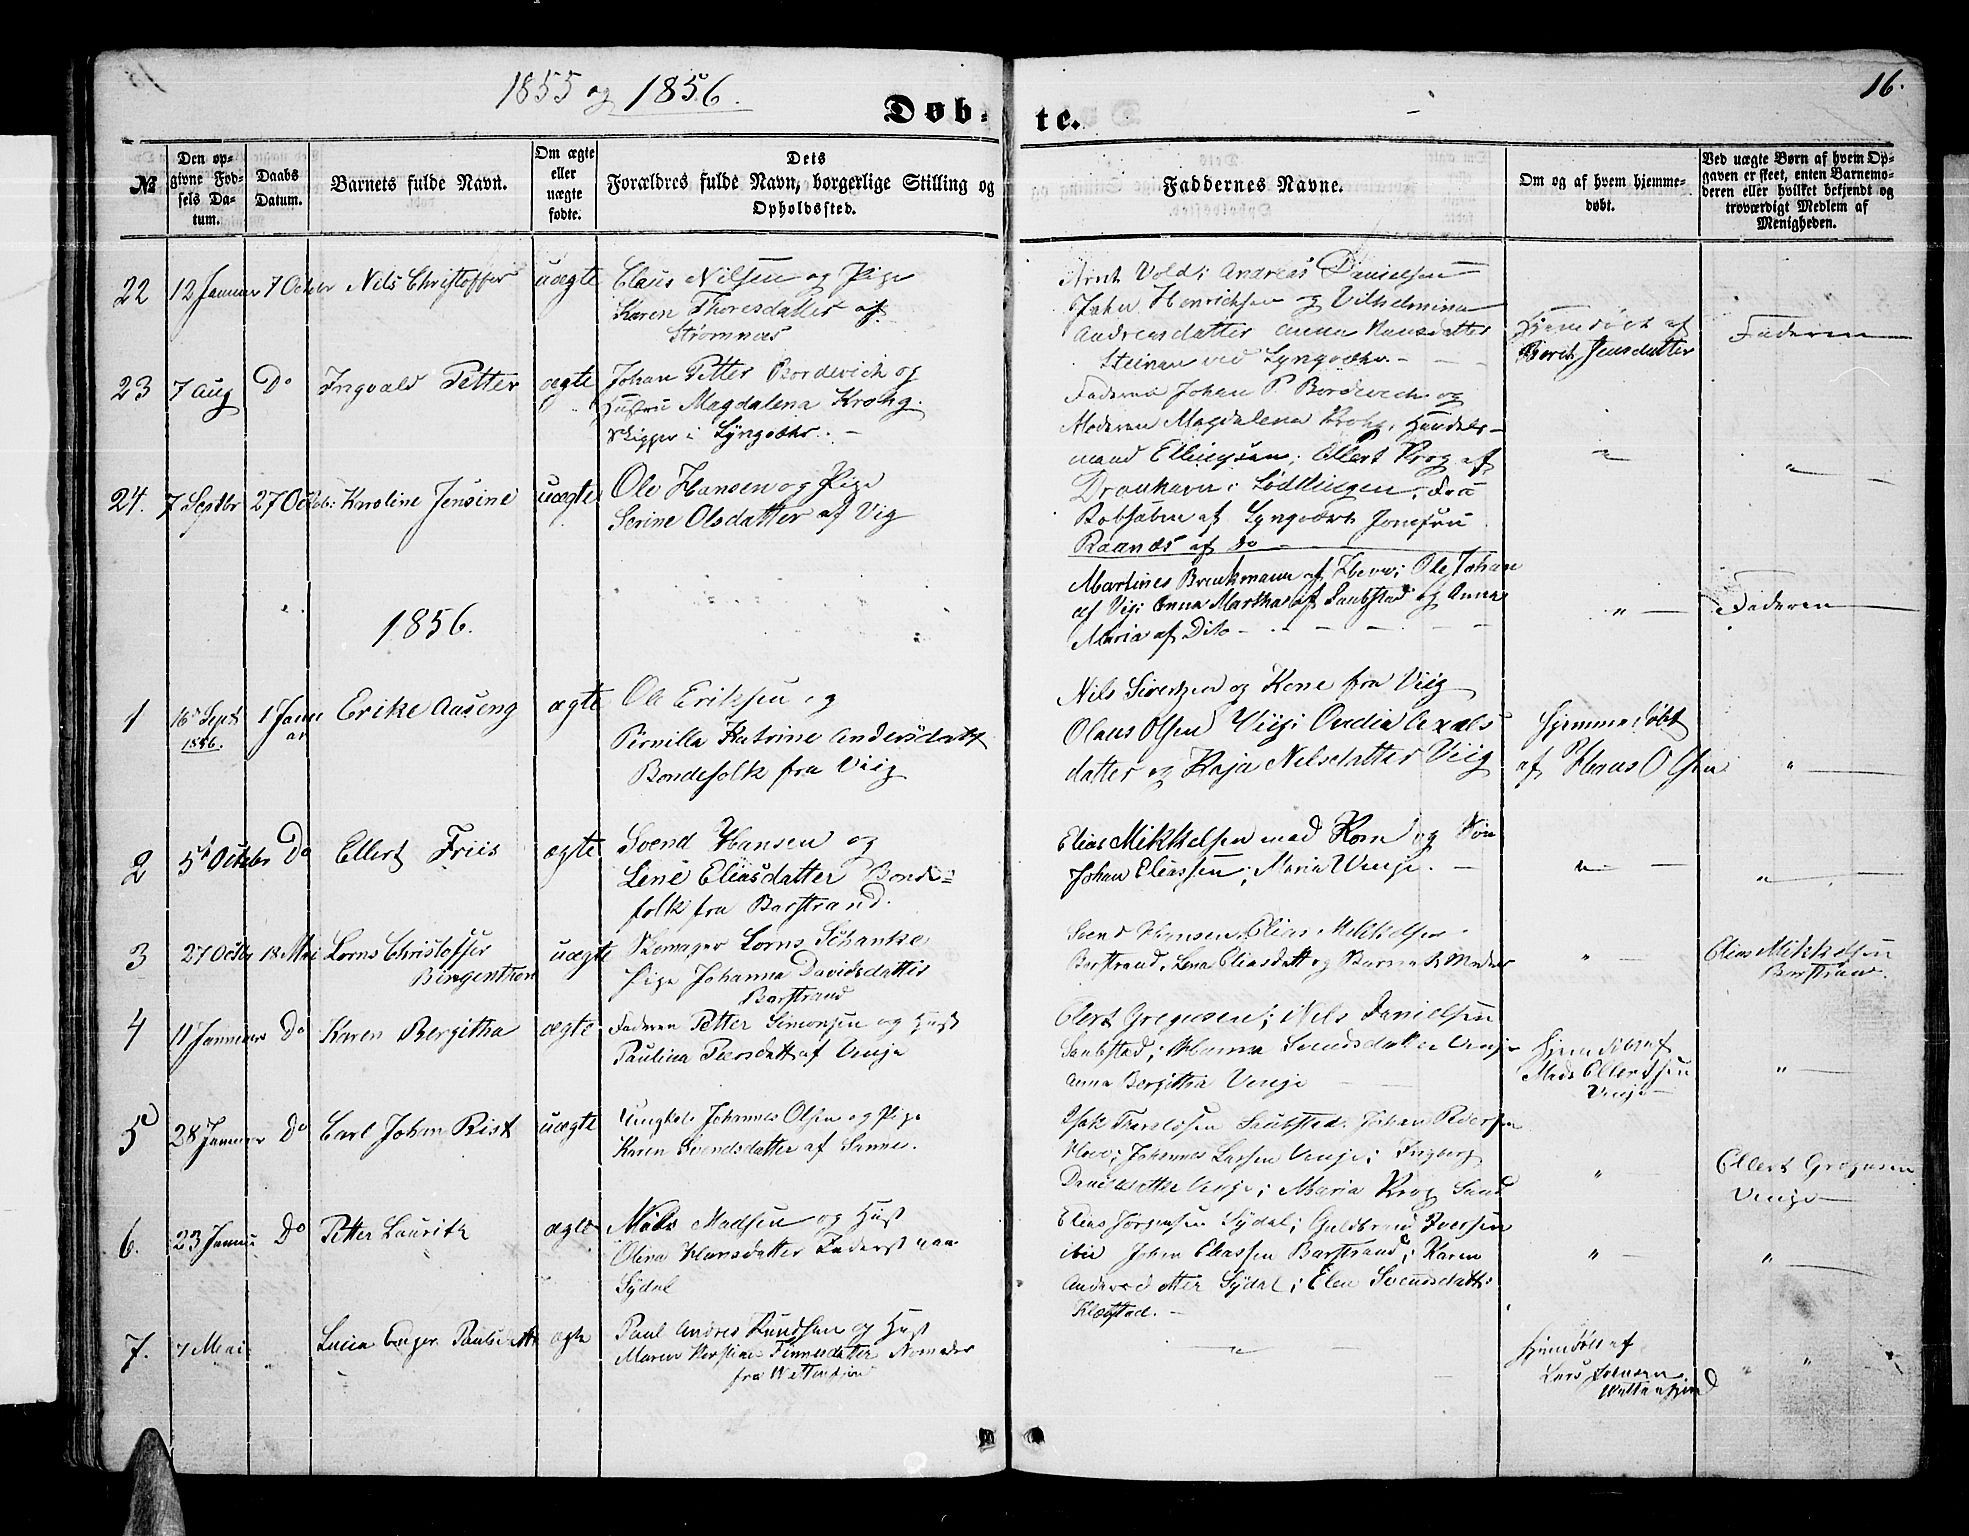 1855 og 1856.
16.
Døb-
te.
№
Den op-
givne Fød-
sels Da-
tum.
Daabs
Datum.
Barnets fulde Navn.
Om ægte
eller
uægte
fødte.
Dets
Forældres fulde Navn, borgerlige Stilling og
Opholdssted.
Faddernes Navne.
Om og af hvem hjemme-
døbt.
Ved uægte Børn af hvem Op-
gaven er skeet, enten Barnemo-
deren eller hvilket bekjendt og
troværdigt Medlem af
Menigheden.
22 12 Januar 7 Octbr Nils Christoffer uægte
Claus Nilsen og Pige
Karen Thoresdatter af
Strømnes
Arnt Vold; Andreas Danielsen
John Henrichsen og Vilhelmina
Andreasdatter Anna Hansdatter
Steinan ved Lyngvær.
Hjemdøbt af
Berit Jensdatter
Faderen
23 7 Aug Do Ingvald Petter ægte
Johan Petter Bordevich og
Hustru Magdalena Krohg.
Skipper i Lyngvær.
Faderen Johan P. Bordevich og
Moderen Magdalena Krohg, Handels-
mand Ellingsen; Ellert Krog af
i Lødingen; Fru
af Lyngvær Jomfru
Raanæs af Do
24. 7 Septbr 27 Octob: Karoline Jensine uægte
Ole Hansen og Pige
Serine Olsdatter af Vig
Martines Brenkmann af ; Ole Johan
af Vig; Anna Martha af Saubstad og Anna
Maria af Dito
Faderen
1856.
1 16 Sept 1 Janu Erike Aaseng ægte
1856. ar
Ole Eriksen og
Pernilla Katrine Andersdatt
Bondefolk fra Viig
Nils Sivertsen og Kone fra Viig
Olaus Olsen Viig; Ovedia Axels
datter og Kaja Nilsdatter Viig
Hjemmedøbt
af Hans Olsen
2 5t Octobr Do Ellert Friis ægte
Svend Hansen og
Lene Eliasdatter Bonde=
folk fra Barstrand.
Elias Mikkelsen med Kone og Søn
Johan Eliassen; Maria Venje.
3 27 Octbr 18 Mai Lorns Christoffer uægte
Bingentron
Skomager Lorns Schanke
Pige Johanna Davidsdatter
Barstrand
Svend Hansen, Elias Mikkelsen
Barstrand, Lena Eliasdatt og Barnets Moder
Elias Mikkelsen
Barstrand.
4 11 Januar Do Karen Bergitha ægte
Faderen Petter Simonsen og Hust
Paulina Peersdatt af Venje
Elert Gregusen; Nils Danielsen
Saubstad; Hanna Svendsdatter Venje
Anna Bergitha Venje
Hjemdøbt af
Mads Ellertsen
Venje
5 28 Januar Do Carl Johan Rist uægte
Ungkal Johannes Olsen og Pige
Karen Svendsdatter af Sanne.
Isak Tharaldsen Saubstad. Johan Pedersen
Hove; Johannes Larsen Venje; Ingborg
Danielsdatter Venje; Maria Krog Sand
Ellert Gregusen
Venje
6. 23 Janu Do Petter Lauritz ægte
Nils Madsen og Hust
Olena Hansdatter Faderst paa
Sydal
Elias Jørgensen Sydal; Guldbrand Iversen
ibid Johan Eliassen Barstrand; Karen
Andersdatter Sydal; Elen Svendsdatter
Kleppstad.
7. 7 Mai Lucia Enger Paulsdatt ægte
Paul Andres Knudsen og Hust
Maren Kirstine Finnesdatter Nomader
fra Wattenfjord
Hjemdøbt af
Lars Johnsen
Wattenfjord